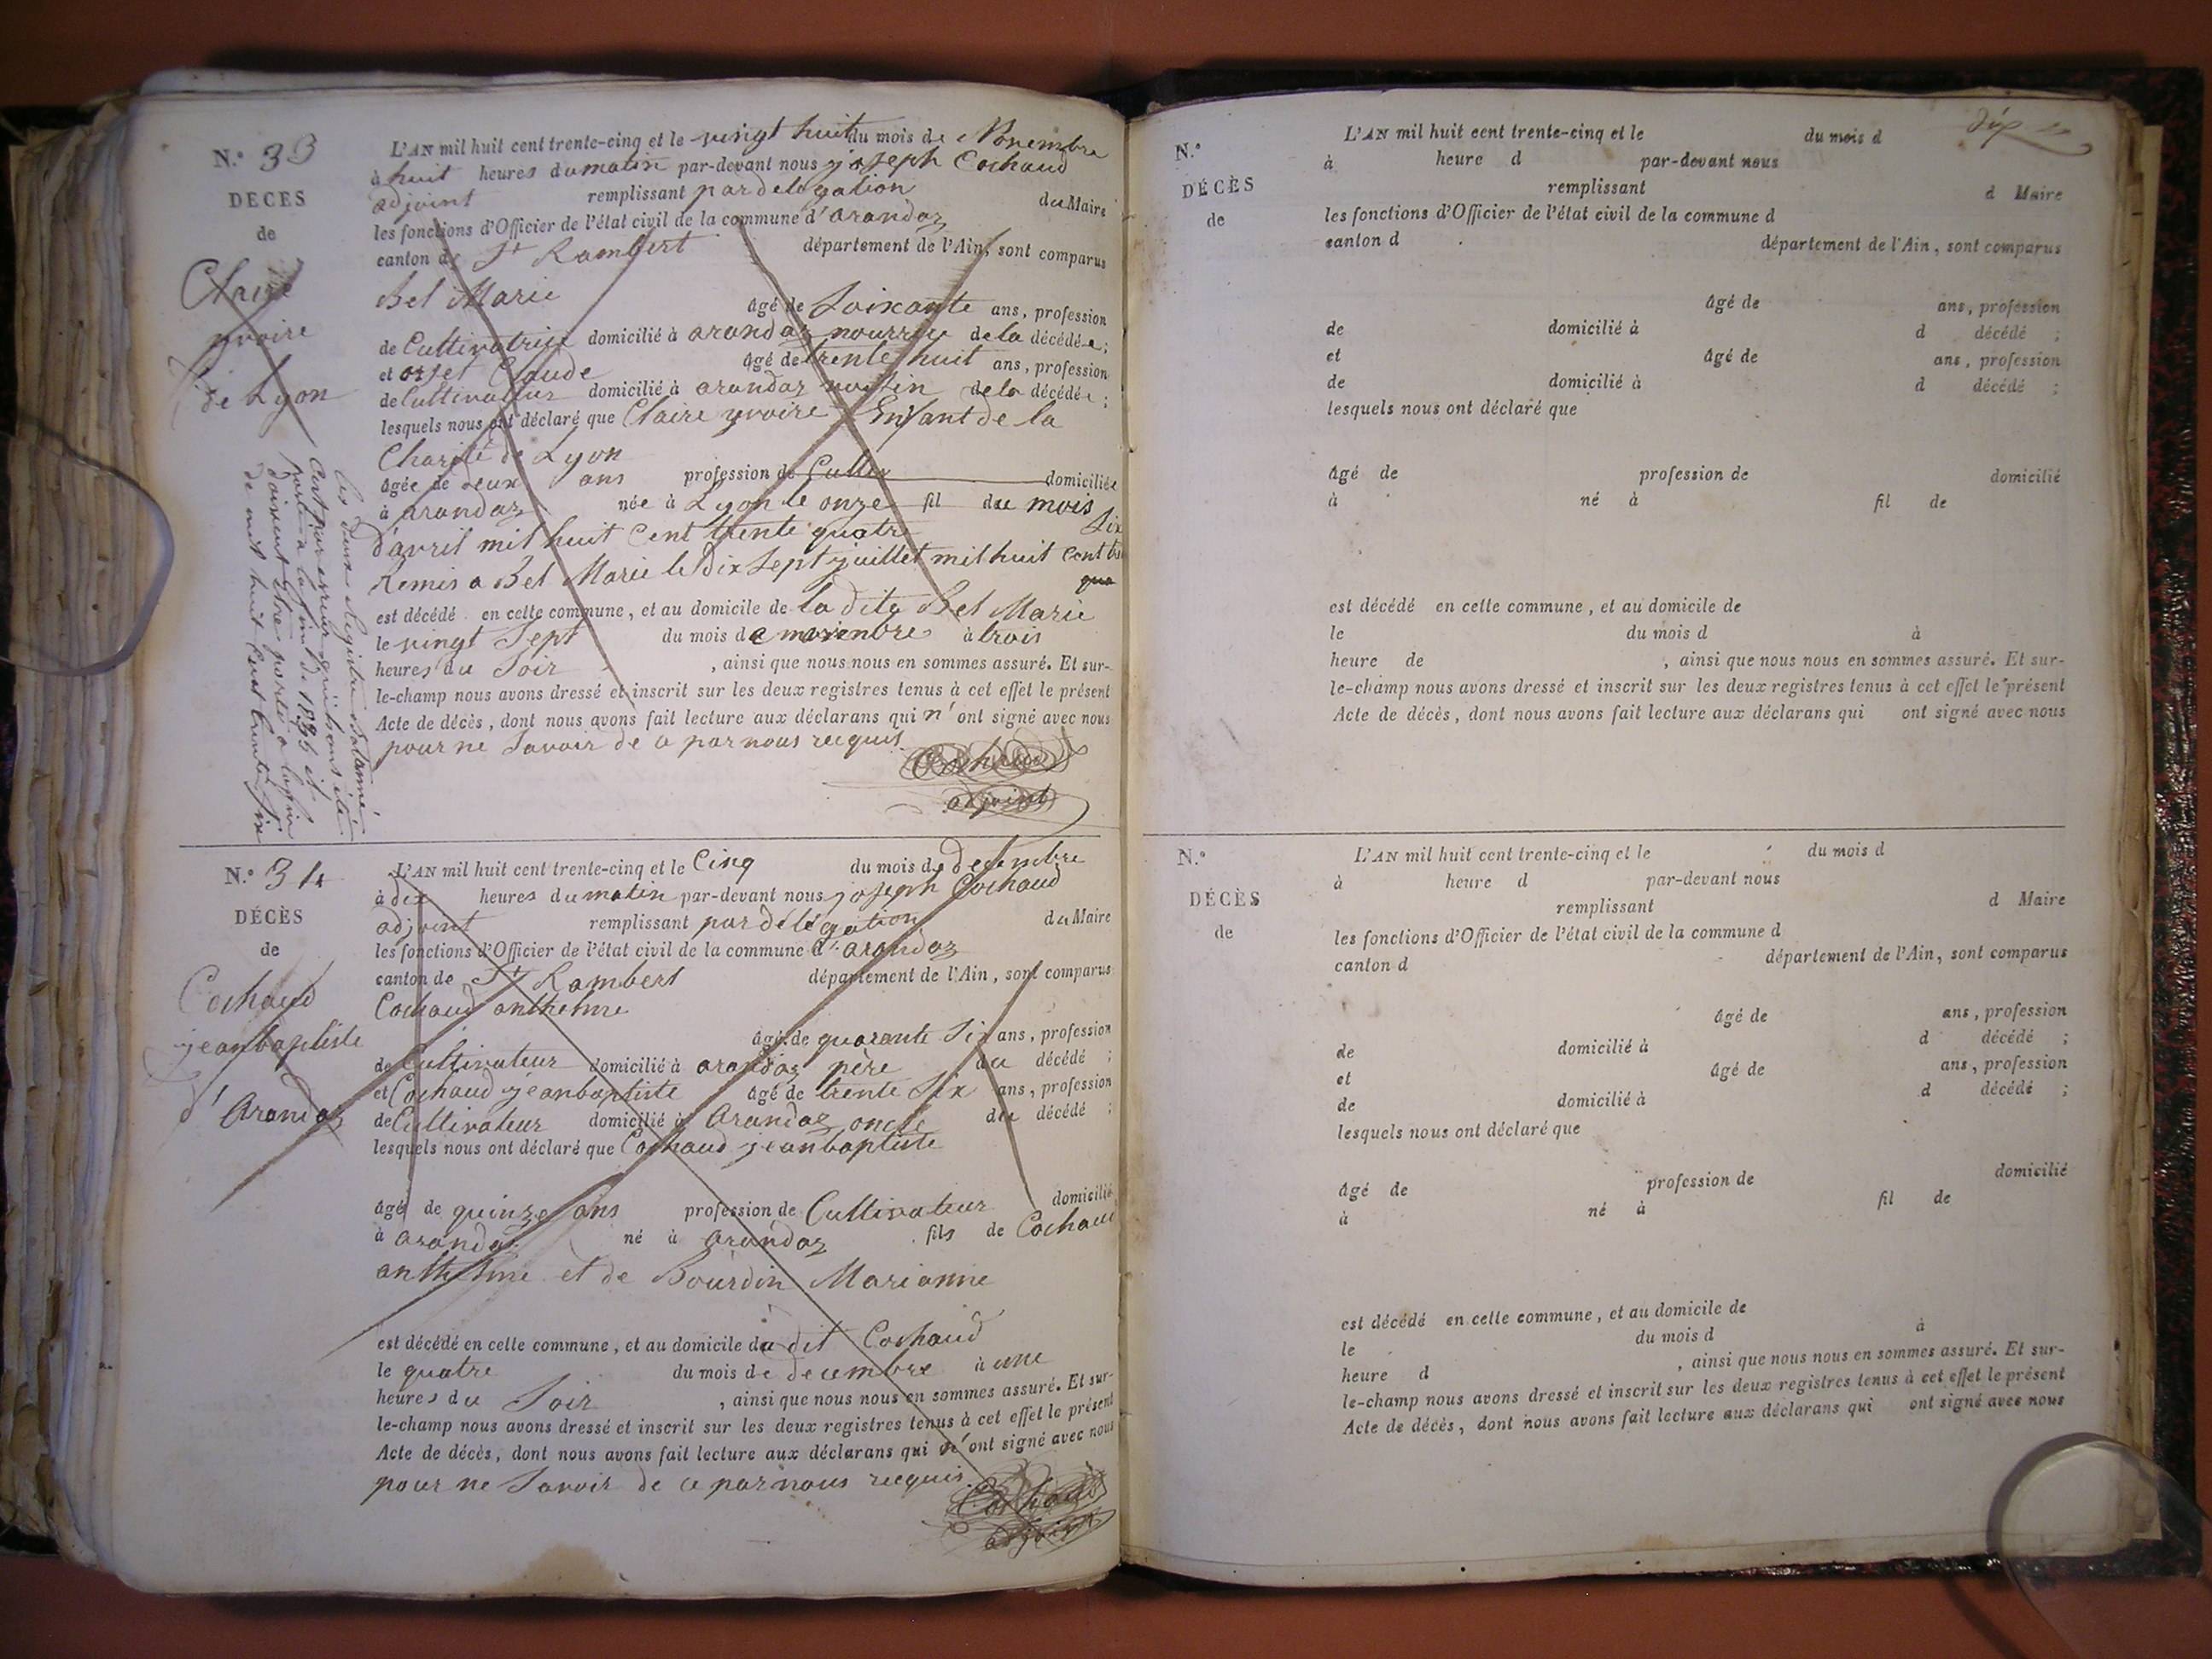 N.° 33
DÉCÈS
de
Claire
yvoire
de Lyon
L'AN mil huit cent trente-cinq et le vingt huit du mois de Novembre
à huit heures du matin par-devant nous joseph Cochaud
adjoint remplissant par delegation du Maire
les fonctions d'Officier de l'état civil de la commune d'arandaz
canton de St Rambert département de l'Ain, sont comparus
Bel Marie âgé de Soixante ans, profession
de Cultivatrice domicilié à arandaz nourrice de la décédée;
et orset Claude âgé de trente huit ans, profession
de Cultivateur domicilié à arandaz voisin de la décédée;
lesquels nous ont déclaré que Claire yvoire Enfant de la
Charité de Lyon
âgée de deux ans profession de domiciliée
à arandaz née à Lyon le onze fil du mois
d'avril mil huit Cent trente quatre
Remis a Bel Marie le Dix Sept juillet mil huit Cent
est décédé en cette commune, et au domicile de la dite Bel Marie
le vingt Sept du mois de novembre à trois
heures du Soir, ainsi que nous nous en sommes assuré. Et sur-
le-champ nous avons dressé et inscrit sur les deux registres tenus à cet effet le présent
Acte de décès, dont nous avons fait lecture aux déclarans qui n'ont signé avec nous
pour ne Savoir de ce par nous recquis.
Cochaud
adjoint
les deux Registres
C'est par erreur qu'ils ont été
porté a la fin de 1835 et
doivent être porté a la fin
de mil huit Cent trente Six
N.° 34
DÉCÈS
de
Cochaud
jeanbaptiste
d'Arandaz
L'AN mil huit cent trente-cinq et le Cinq du mois de decembre
à dix heures du matin par-devant nous joseph Cochaud
adjoint remplissant par délégation du Maire
les fonctions d'Officier de l'état civil de la commune d'arandaz
canton de St Rambert département de l'Ain, sont comparus
Cochaud anthelme
âgé de quarante Six ans, profession
de Cultivateur domicilié à arandaz père du décédé;
et Cochaud jeanbaptiste âgé de trente Six ans, profession
de Cultivateur domicilié à Arandaz oncle du décédé;
lesquels nous ont déclaré que Cochaud jeanbaptiste
âgé de quinze ans profession de Cultivateur domicilié
à arandaz né à arandaz fils de Cochaud
anthelme et de Bourdin Marianne
est décédé en cette commune, et au domicile du dit Cochaud
le quatre du mois de decembre à une
heures du Soir, ainsi que nous nous en sommes assuré. Et sur-
le-champ nous avons dressé et inscrit sur les deux registres tenus à cet effet le présent
Acte de décès, dont nous avons fait lecture aux déclarans qui n'ont signé avec nous
pour ne Savoir de ce par nous recquis.
Cochaud
adjoint
N.°
DÉCÈS
de
L'AN mil huit cent trente-cinq et le du mois d
à heure d par-devant nous
remplissant d Maire
les fonctions d'Officier de l'état civil de la commune d
canton d département de l'Ain, sont comparus
âgé de ans, profession
de domicilié à d décédé ;
et âgé de ans, profession
de domicilié à d décédé ;
lesquels nous ont déclaré que
âgé de profession de domicilié
à né à fil de
est décédé en cette commune, et au domicile de
le du mois d à
heure de , ainsi que nous nous en sommes assuré. Et sur-
le-champ nous avons dressé et inscrit sur les deux registres tenus à cet effet le présent
Acte de décès, dont nous avons fait lecture aux déclarans qui ont signé avec nous
N.°
DÉCÈS
de
L'AN mil huit cent trente-cinq et le du mois d
à heure d par-devant nous
remplissant d Maire
les fonctions d'Officier de l'état civil de la commune d
canton d département de l'Ain, sont comparus
âgé de ans, profession
de domicilié à d décédé ;
et âgé de ans, profession
de domicilié à d décédé ;
lesquels nous ont déclaré que
âgé de profession de domicilié
à né à fil de
est décédé en cette commune, et au domicile de
le du mois d à
heure d , ainsi que nous nous en sommes assuré. Et sur-
le-champ nous avons dressé et inscrit sur les deux registres tenus à cet effet le présent
Acte de décès, dont nous avons fait lecture aux déclarans qui ont signé avec nous